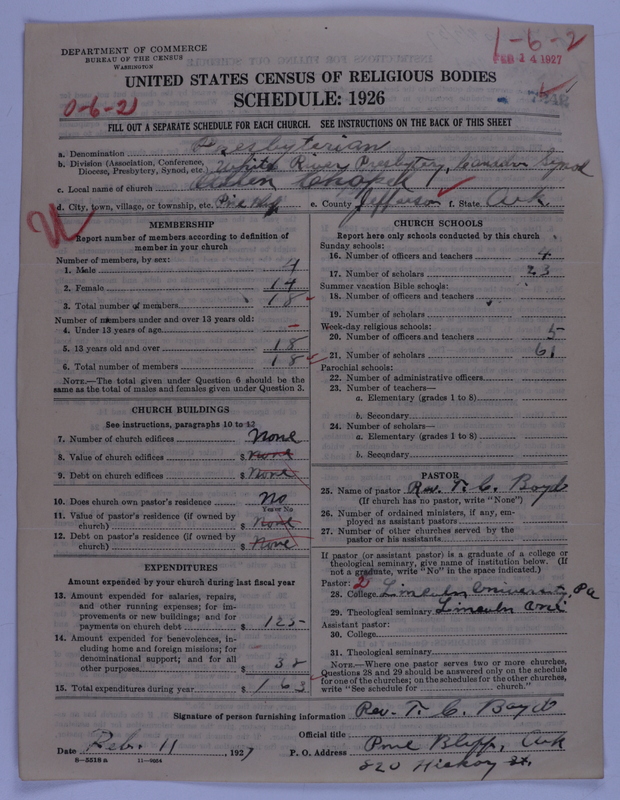 DEPARTMENT OF COMMERCE
BUREAU OF THE CENSUS
WASHINGTON
1-6-2
FEB 14 1927
UNITED STATES CENSUS OF RELIGIOUS BODIES
SCHEDULE: 1926
0-6-2
FILL OUT A SEPARATE SCHEDULE FOR EACH CHURCH. SEE INSTRUCTIONS ON THE BACK OF THIS SHEET
a. Denomination Presbyterian
b. Division (Association, Conference, Diocese, Presbytery, Synod, etc) White River Presbytery, Canadian Synod
c. Local name of church Allen Chapel
d. City, town, village, or township, etc. Pine Bluff e. County Jefferson f. State Ark.
MEMBERSHIP
Report number of members according to definition of
member in your church
Number of members, by sex:
1. Male 4
2. Female 14
3. Total number of members 18
Number of members under and over 13 years old:
4. Under 13 years of age –
5. 13 years old and over 18
6. Total number of members 18
NOTE.—The total given under Question 6 should be the
same as the total of males and females given under Question 3.
CHURCH BUILDINGS
See instructions, paragraphs 10 to 12
7. Number of church edifices None
8. Value of church edifices $ None
9. Debt on church edifices $ None
10. Does church own pastor's residence No
Yes or No
11. Value of pastor's residence (if owned by
church) $ None
12. Debt on pastor's residence (if owned by
church) $ None
EXPENDITURES
Amount expended by your church during last fiscal year
13. Amount expended for salaries, repairs,
and other running expenses; for im-
provements or new buildings; and for
payments on church debt $ 125
14. Amount expended for benevolences, in-
cluding home and foreign missions; for
denominational support; and for all
other purposes $ 38
15. Total expenditures during year $ 163
CHURCH SCHOOLS
Report here only schools conducted by this church
Sunday schools:
16. Number of officers and teachers 4
17. Number of scholars 23
Summer vacation Bible schools:
18. Number of officers and teachers
19. Number of scholars
Week-day religious schools:
20. Number of officers and teachers 5
21. Number of scholars 61
Parochial schools:
22. Number of administrative officers
23. Number of teachers—
a. Elementary (grades 1 to 8)
b. Secondary
24. Number of scholars—
a. Elementary (grades 1 to 8)
b. Secondary
PASTOR
25. Name of pastor Rev. T. C. Boyd
(If church has no pastor, write "None")
26. Number of ordained ministers, if any, em-
ployed as assistant pastors
27. Number of other churches served by the
pastor or his assistants
If pastor (or assistant pastor) is a graduate of a college or
theological seminary, give name of institution below. (If
not a graduate, write "No" in the space indicated.)
Pastor: 2
28. College Lincoln University, Pa
29. Theological seminary Lincoln Uni
Assistant pastor:
30. College
31. Theological seminary
NOTE.—Where one pastor serves two or more churches,
Questions 28 and 29 should be answered only on the schedule
for one of the churches; on the schedules for the other churches,
write "See schedule for church."
Signature of person furnishing information Rev. T. C. Boyd
Official title
Date Feb. 11 1927 P. O. Address Pine Bluff, Ark
820 Hickory St.
8-5518 a 11-9064